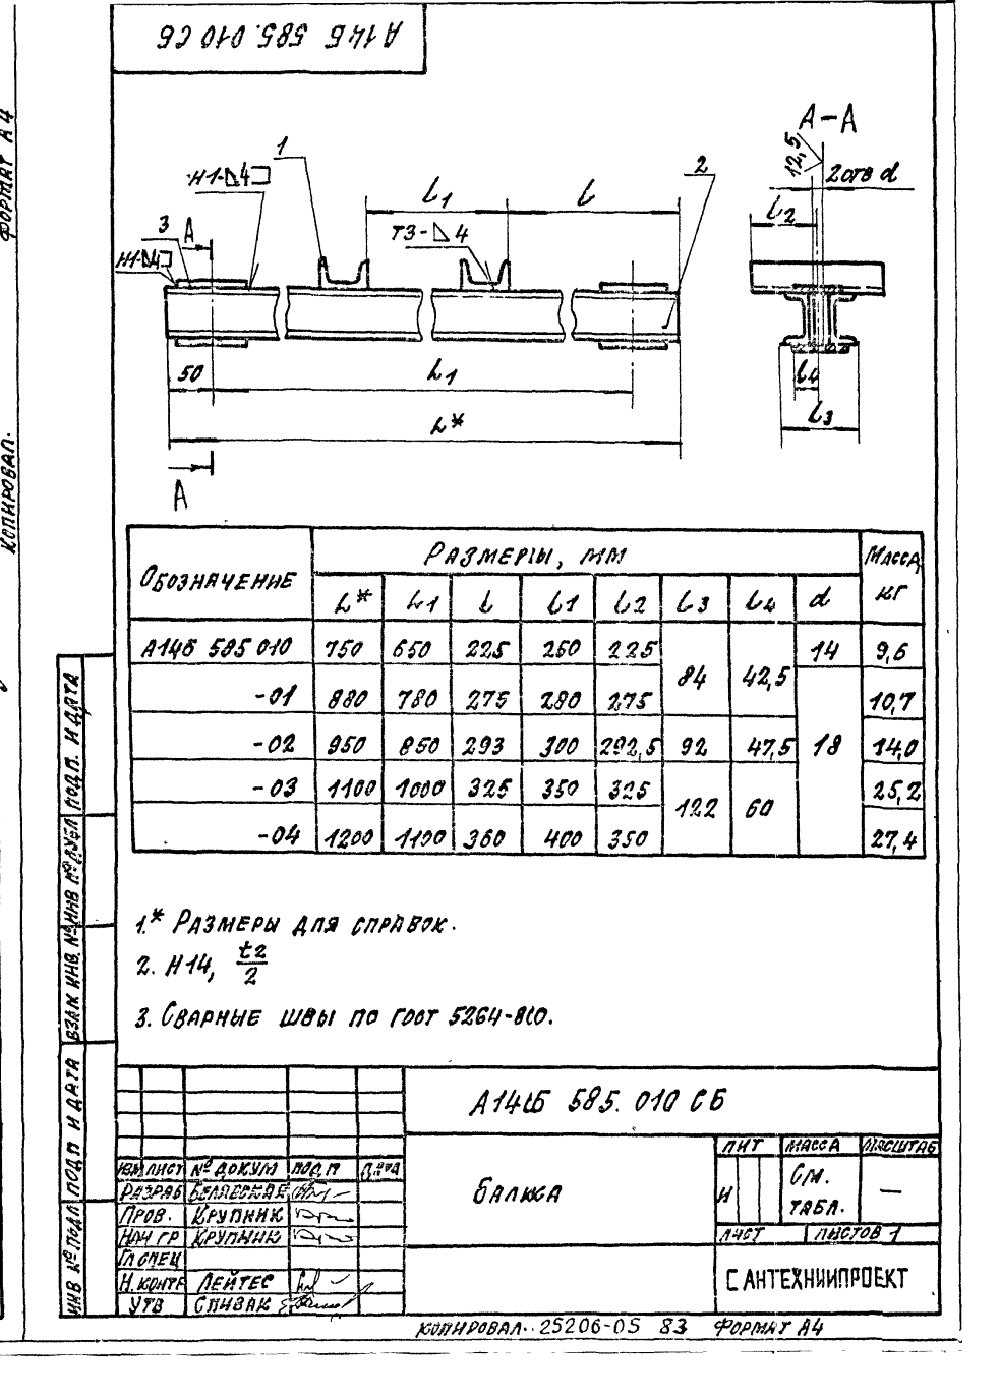 А14Б 585.010 СБ
ФОРМАТ А4
КОПИРОВАЛ.
А-А
12,5
2 отв d
1
2
3
Н1-⊿4
Н1-⊿4
L1
l
Т3-⊿4
А
l2
50
L1
l4
l3
L*
А
ОБОЗНАЧЕНИЕ РАЗМЕРЫ, ММ МАССА, КГ
L* L1 l l1 l2 l3 l4 d
А14Б 585 010 750 650 225 260 225 84 42,5 14 9,6
-01 880 780 275 280 275 18 10,7
-02 950 850 293 300 292,5 92 47,5 14,0
-03 1100 1000 325 350 325 122 60 25,2
-04 1200 1100 360 400 350 27,4
1.* РАЗМЕРЫ ДЛЯ СПРАВОК.
2. Н14, t2/2
3. СВАРНЫЕ ШВЫ ПО ГОСТ 5264-80.
ИНВ № ПОДЛ ПОДП И ДАТА ВЗАМ ИНВ. № ИНВ № ДУБЛ ПОДП. И ДАТА
А14Б 585. 010 СБ
ИЗМ ЛИСТ № ДОКУМ ПОДП ДАТА
РАЗРАБ БЕЛЯВСКАЯ
ПРОВ. КРУПНИК
НАЧ ГР КРУПНИК
ГЛ СПЕЦ
Н. КОНТР ЛЕЙТЕС
УТВ СПИВАК
БАЛКА
ЛИТ МАССА МАСШТАБ
И СМ. ТАБЛ. —
ЛИСТ ЛИСТОВ 1
САНТЕХНИИПРОЕКТ
КОПИРОВАЛ.. 25206-05 83 ФОРМАТ А4